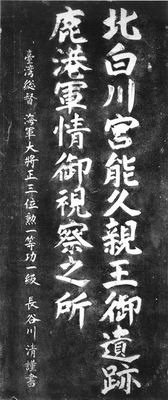 北白川宮能久親王御遺跡
鹿港軍情御視察之所
臺湾総督 海軍大將正三位勲一等功一級 長谷川 清謹書